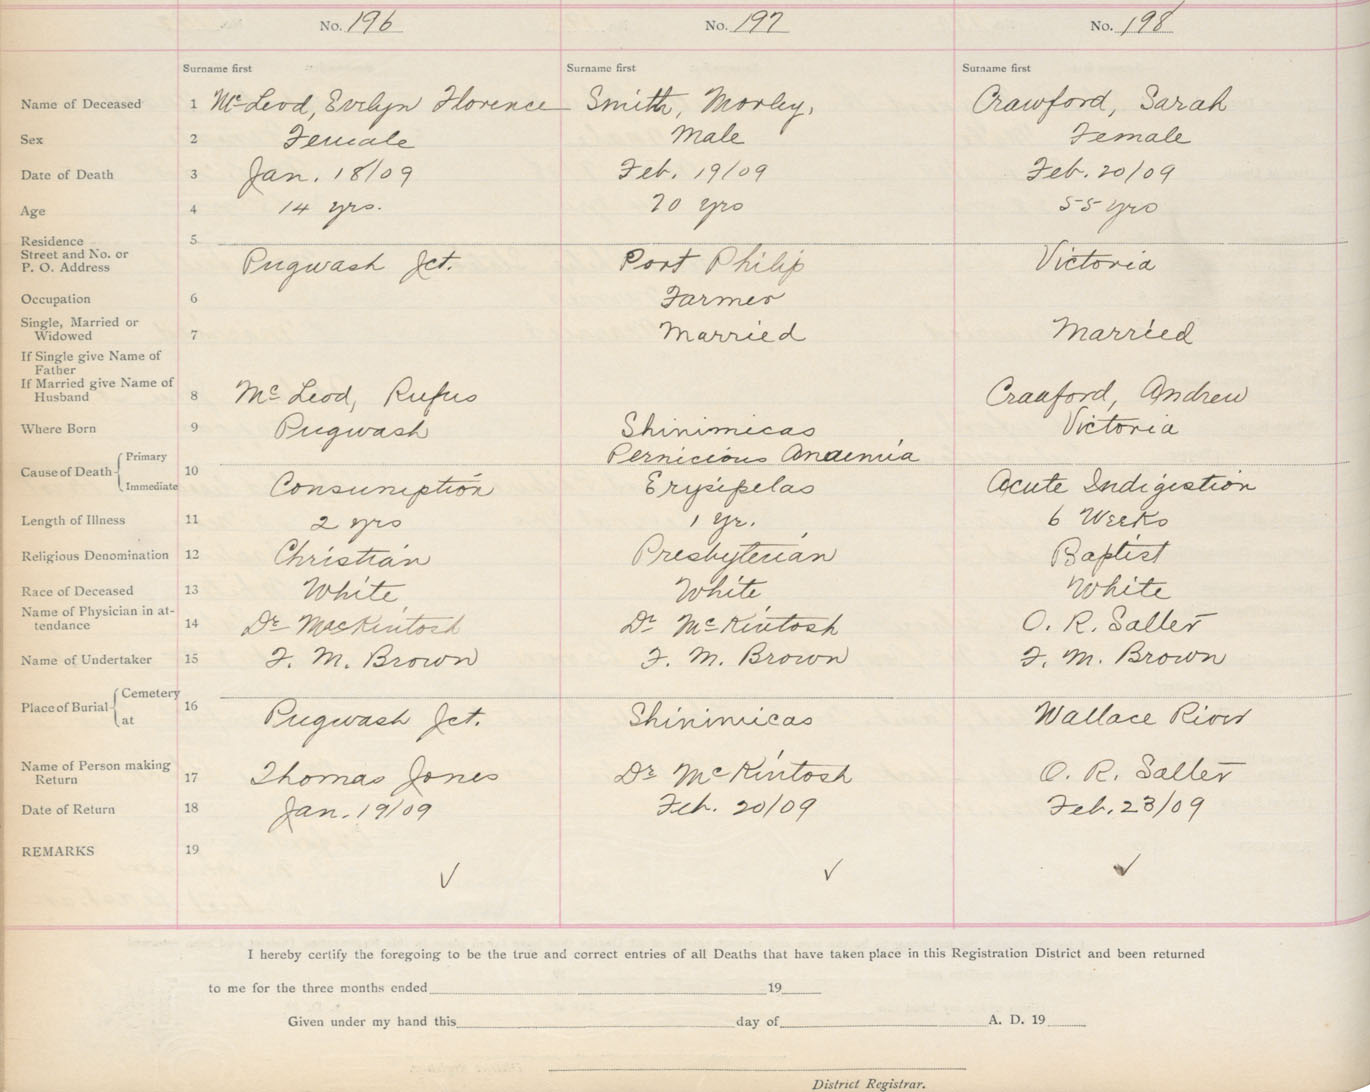 No. 196 No. 197 No. 198
Surname first Surname first Surname first
Name of Deceased 1 McLeod, Evelyn Florence Smith, Morley, Crawford, Sarah
Sex 2 Female Male Female
Date of Death 3 Jan. 18/09 Feb. 19/09 Feb. 20/09
Age 4 14 yrs. 70 yrs 55 yrs
Residence 5
Street and No. or
P. O. Address Pugwash Jct. Port Philip Victoria
Occupation 6 Farmer
Single, Married or
Widowed 7 Married Married
If Single give Name of
Father
If Married give Name of
Husband 8 McLeod, Rufus Crawford, Andrew
Where Born 9 Pugwash Shinimicas Victoria
Cause of Death Primary 10 Pernicious Anaemia
Immediate Consumption Erysipelas Acute Indigestion
Length of Illness 11 2 yrs 1 yr. 6 Weeks
Religious Denomination 12 Christian Presbyterian Baptist
Race of Deceased 13 White White White
Name of Physician in at-
tendance 14 Dr MacKintosh Dr McKintosh O. R. Salter
Name of Undertaker 15 F. M. Brown F. M. Brown F. M. Brown
Place of Burial Cemetery 16
at Pugwash Jct. Shinimicas Wallace River
Name of Person making
Return 17 Thomas Jones Dr McKintosh O. R. Salter
Date of Return 18 Jan. 19/09 Feb. 20/09 Feb. 23/09
REMARKS 19
I hereby certify the foregoing to be the true and correct entries of all Deaths that have taken place in this Registration District and been returned
to me for the three months ended 19
Given under my hand this day of A. D. 19
District Registrar.